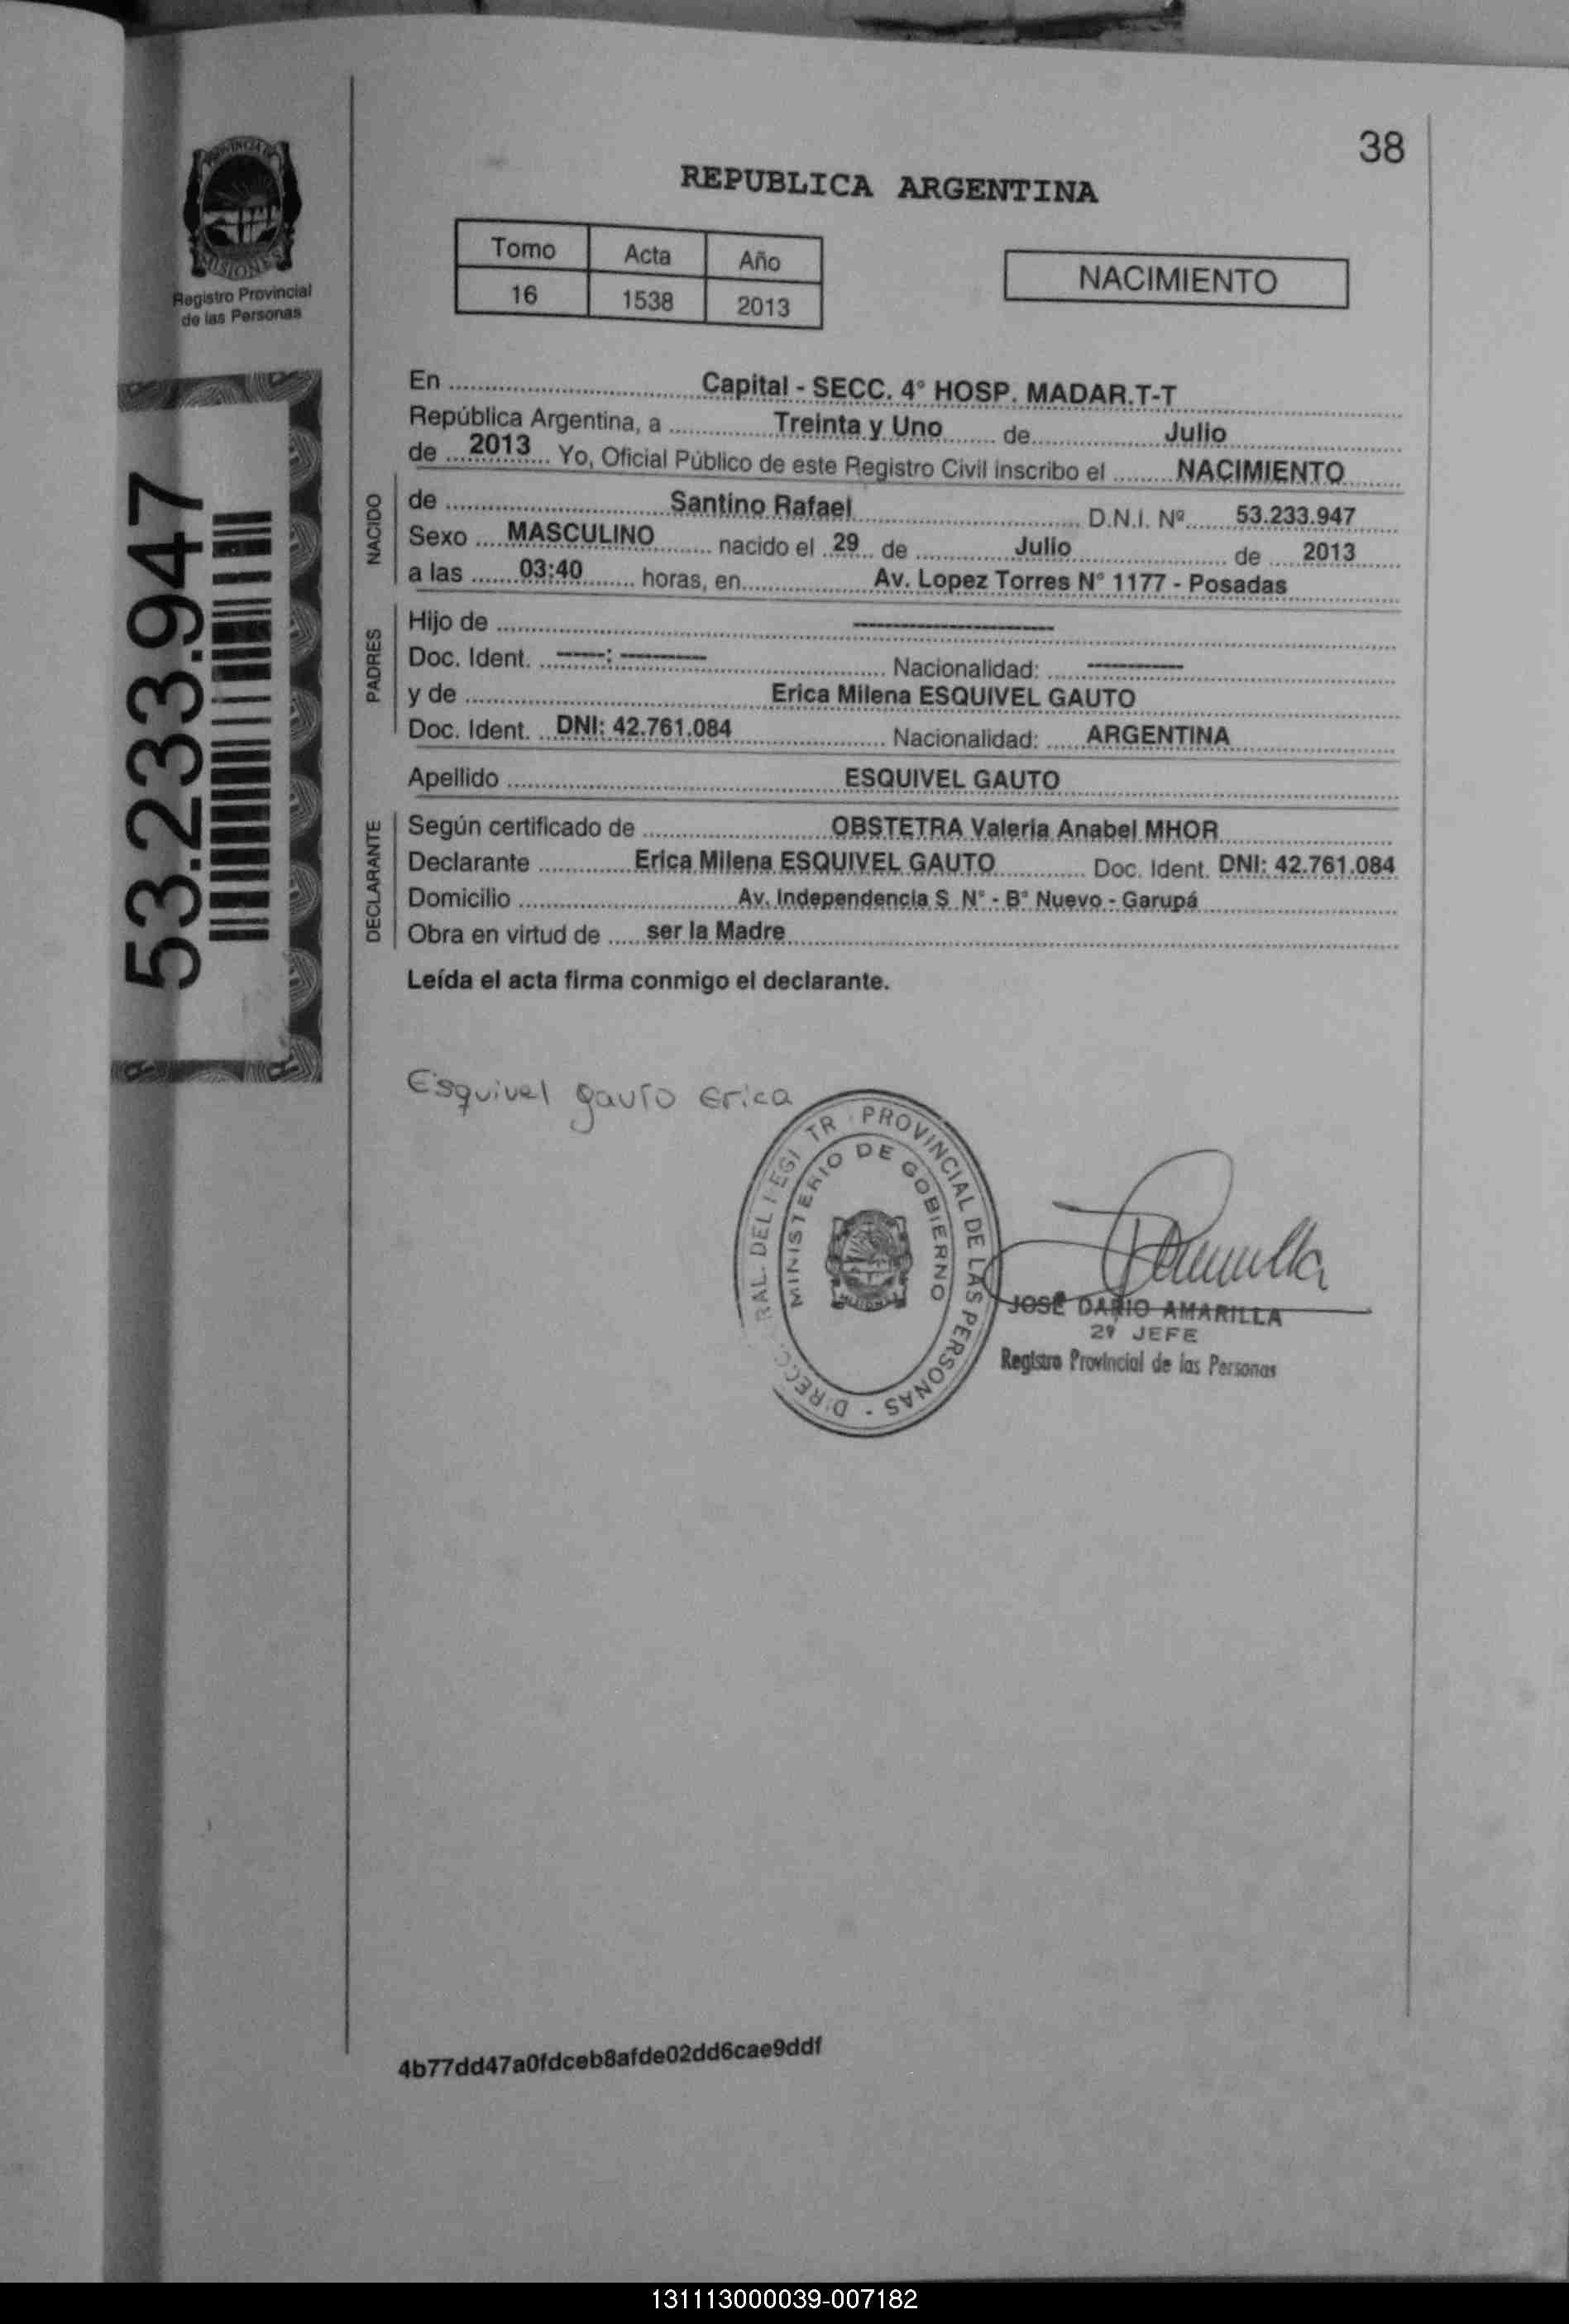 38
PROVINCIA DE
MISIONES
Registro Provincial
de las Personas
REPUBLICA ARGENTINA
Tomo Acta Año
16 1538 2013
NACIMIENTO
53.233.947
En Capital - SECC. 4° HOSP. MADAR.T-T
República Argentina, a Treinta y Uno de Julio
de 2013 Yo, Oficial Público de este Registro Civil inscribo el NACIMIENTO
NACIDO
de Santino Rafael D.N.I. Nº 53.233.947
Sexo MASCULINO nacido el 29 de Julio de 2013
a las 03:40 horas, en Av. Lopez Torres N° 1177 - Posadas
PADRES
Hijo de ----------
Doc. Ident. -----: --------- Nacionalidad: ----------
y de Erica Milena ESQUIVEL GAUTO
Doc. Ident. DNI: 42.761.084 Nacionalidad: ARGENTINA
Apellido ESQUIVEL GAUTO
DECLARANTE
Según certificado de OBSTETRA Valeria Anabel MHOR
Declarante Erica Milena ESQUIVEL GAUTO Doc. Ident. DNI: 42.761.084
Domicilio Av. Independencia S N° - B° Nuevo - Garupá
Obra en virtud de ser la Madre
Leída el acta firma conmigo el declarante.
Esquivel gauto Erica
PROVINCIAL DE LAS PERSONAS
MINISTERIO DE GOBIERNO
JOSÉ DARIO AMARILLA
2º JEFE
Registro Provincial de las Personas
4b77dd47a0fdceb8afde02dd6cae9ddf
131113000039-007182